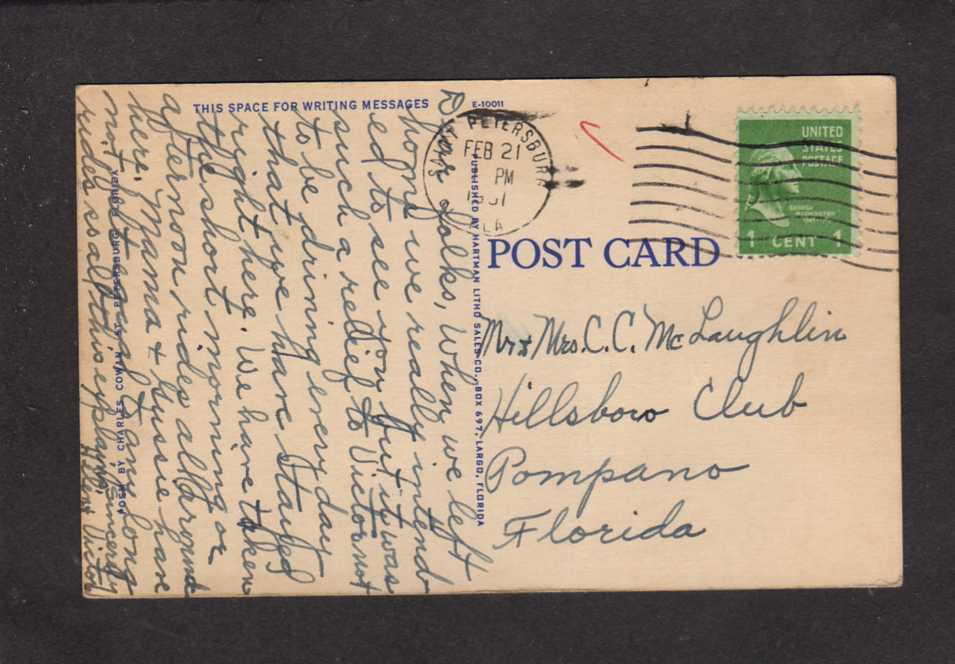 THIS SPACE FOR WRITING MESSAGES
E-10011
Dear Folks, When we left
home we really intend-
ed to see you but it was
such a relief to Victor not
to be driving every day
that we have stayed
right here. We have taken
the short morning or
afternoon rides all around
here. Mama & Gussie have
not felt any long
rides so all this explains. Sincerely
Victor
POEM BY CHARLES COWAN ST. PETERSBURG, FLORIDA
PUBLISHED BY HARTMAN LITHO SALES CO., BOX 697, LARGO, FLORIDA
SAINT PETERSBURG
FEB 21
PM
FLA
UNITED
STATES
POSTAGE
GEORGE
WASHINGTON
1 CENT 1
POST CARD
Mr & Mrs. C. C. McLaughlin
Hillsboro Club
Pompano
Florida